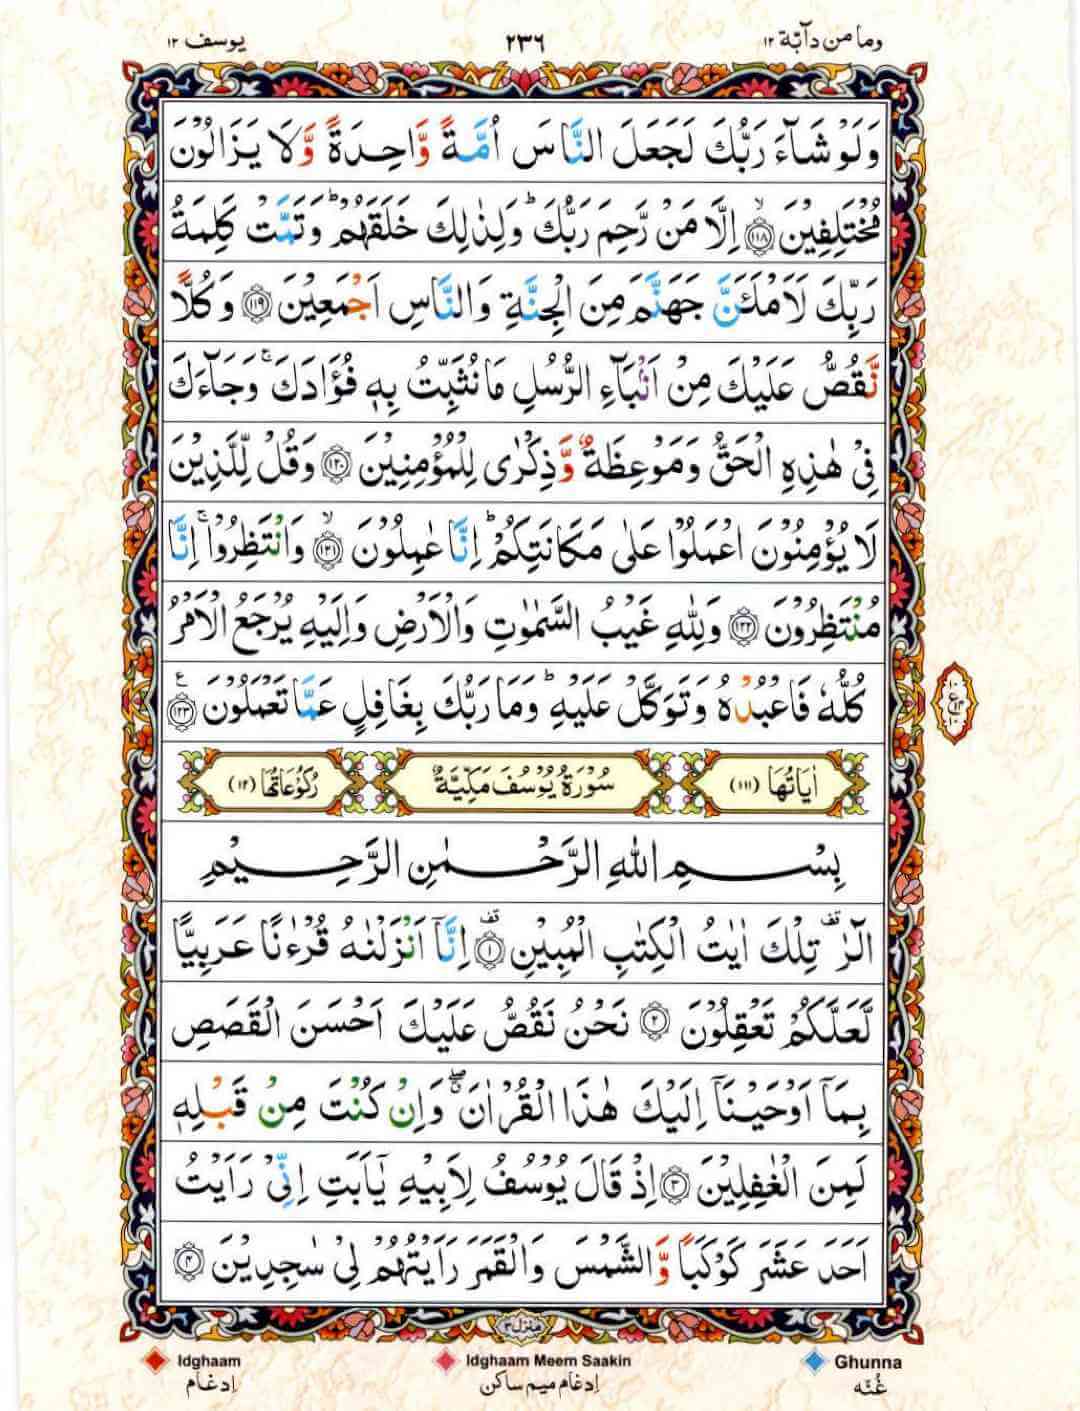 وما من دآبّة ١٢
٢٣٦
يوسف ١٢
وَلَوْ شَآءَ رَبُّكَ لَجَعَلَ النَّاسَ اُمَّةً وَّاحِدَةً وَّلَا يَزَالُوْنَ
مُخْتَلِفِيْنَ ۙ﴿١١٨﴾ اِلَّا مَنْ رَّحِمَ رَبُّكَ ؕ وَلِذٰلِكَ خَلَقَهُمْ ؕ وَتَمَّتْ كَلِمَةُ
رَبِّكَ لَاَمْلَـَٔنَّ جَهَنَّمَ مِنَ الْجِنَّةِ وَالنَّاسِ اَجْمَعِيْنَ ﴿١١٩﴾ وَكُلًّا
نَّقُصُّ عَلَيْكَ مِنْ اَنْۢبَآءِ الرُّسُلِ مَا نُثَبِّتُ بِهٖ فُؤَادَكَ ۚ وَجَآءَكَ
فِيْ هٰذِهِ الْحَقُّ وَمَوْعِظَةٌ وَّذِكْرٰى لِلْمُؤْمِنِيْنَ ﴿١٢٠﴾ وَقُلْ لِّلَّذِيْنَ
لَا يُؤْمِنُوْنَ اعْمَلُوْا عَلٰى مَكَانَتِكُمْ ؕ اِنَّا عٰمِلُوْنَ ۙ﴿١٢١﴾ وَانْتَظِرُوْا ۚ اِنَّا
مُنْتَظِرُوْنَ ﴿١٢٢﴾ وَلِلّٰهِ غَيْبُ السَّمٰوٰتِ وَالْاَرْضِ وَاِلَيْهِ يُرْجَعُ الْاَمْرُ
كُلُّهٗ فَاعْبُدْهُ وَتَوَكَّلْ عَلَيْهِ ؕ وَمَا رَبُّكَ بِغَافِلٍ عَمَّا تَعْمَلُوْنَ ﴿١٢٣﴾ ع
اٰيَاتُهَا (١١١)
سُوْرَةُ يُوْسُفَ مَكِّيَّةٌ
رُكُوْعَاتُهَا (١٢)
بِسْمِ اللهِ الرَّحْمٰنِ الرَّحِيْمِ
الٓرٰ ۫ تِلْكَ اٰيٰتُ الْكِتٰبِ الْمُبِيْنِ ۫﴿١﴾ اِنَّآ اَنْزَلْنٰهُ قُرْءٰنًا عَرَبِيًّا
لَّعَلَّكُمْ تَعْقِلُوْنَ ﴿٢﴾ نَحْنُ نَقُصُّ عَلَيْكَ اَحْسَنَ الْقَصَصِ
بِمَآ اَوْحَيْنَآ اِلَيْكَ هٰذَا الْقُرْاٰنَ ۖ وَاِنْ كُنْتَ مِنْ قَبْلِهٖ
لَمِنَ الْغٰفِلِيْنَ ﴿٣﴾ اِذْ قَالَ يُوْسُفُ لِاَبِيْهِ يٰٓاَبَتِ اِنِّيْ رَاَيْتُ
اَحَدَ عَشَرَ كَوْكَبًا وَّالشَّمْسَ وَالْقَمَرَ رَاَيْتُهُمْ لِيْ سٰجِدِيْنَ ﴿٤﴾
منزل ٣
Idghaam
Idghaam Meem Saakin
Ghunna
اِدغَام
اِدغَام میم ساکن
غُنّه